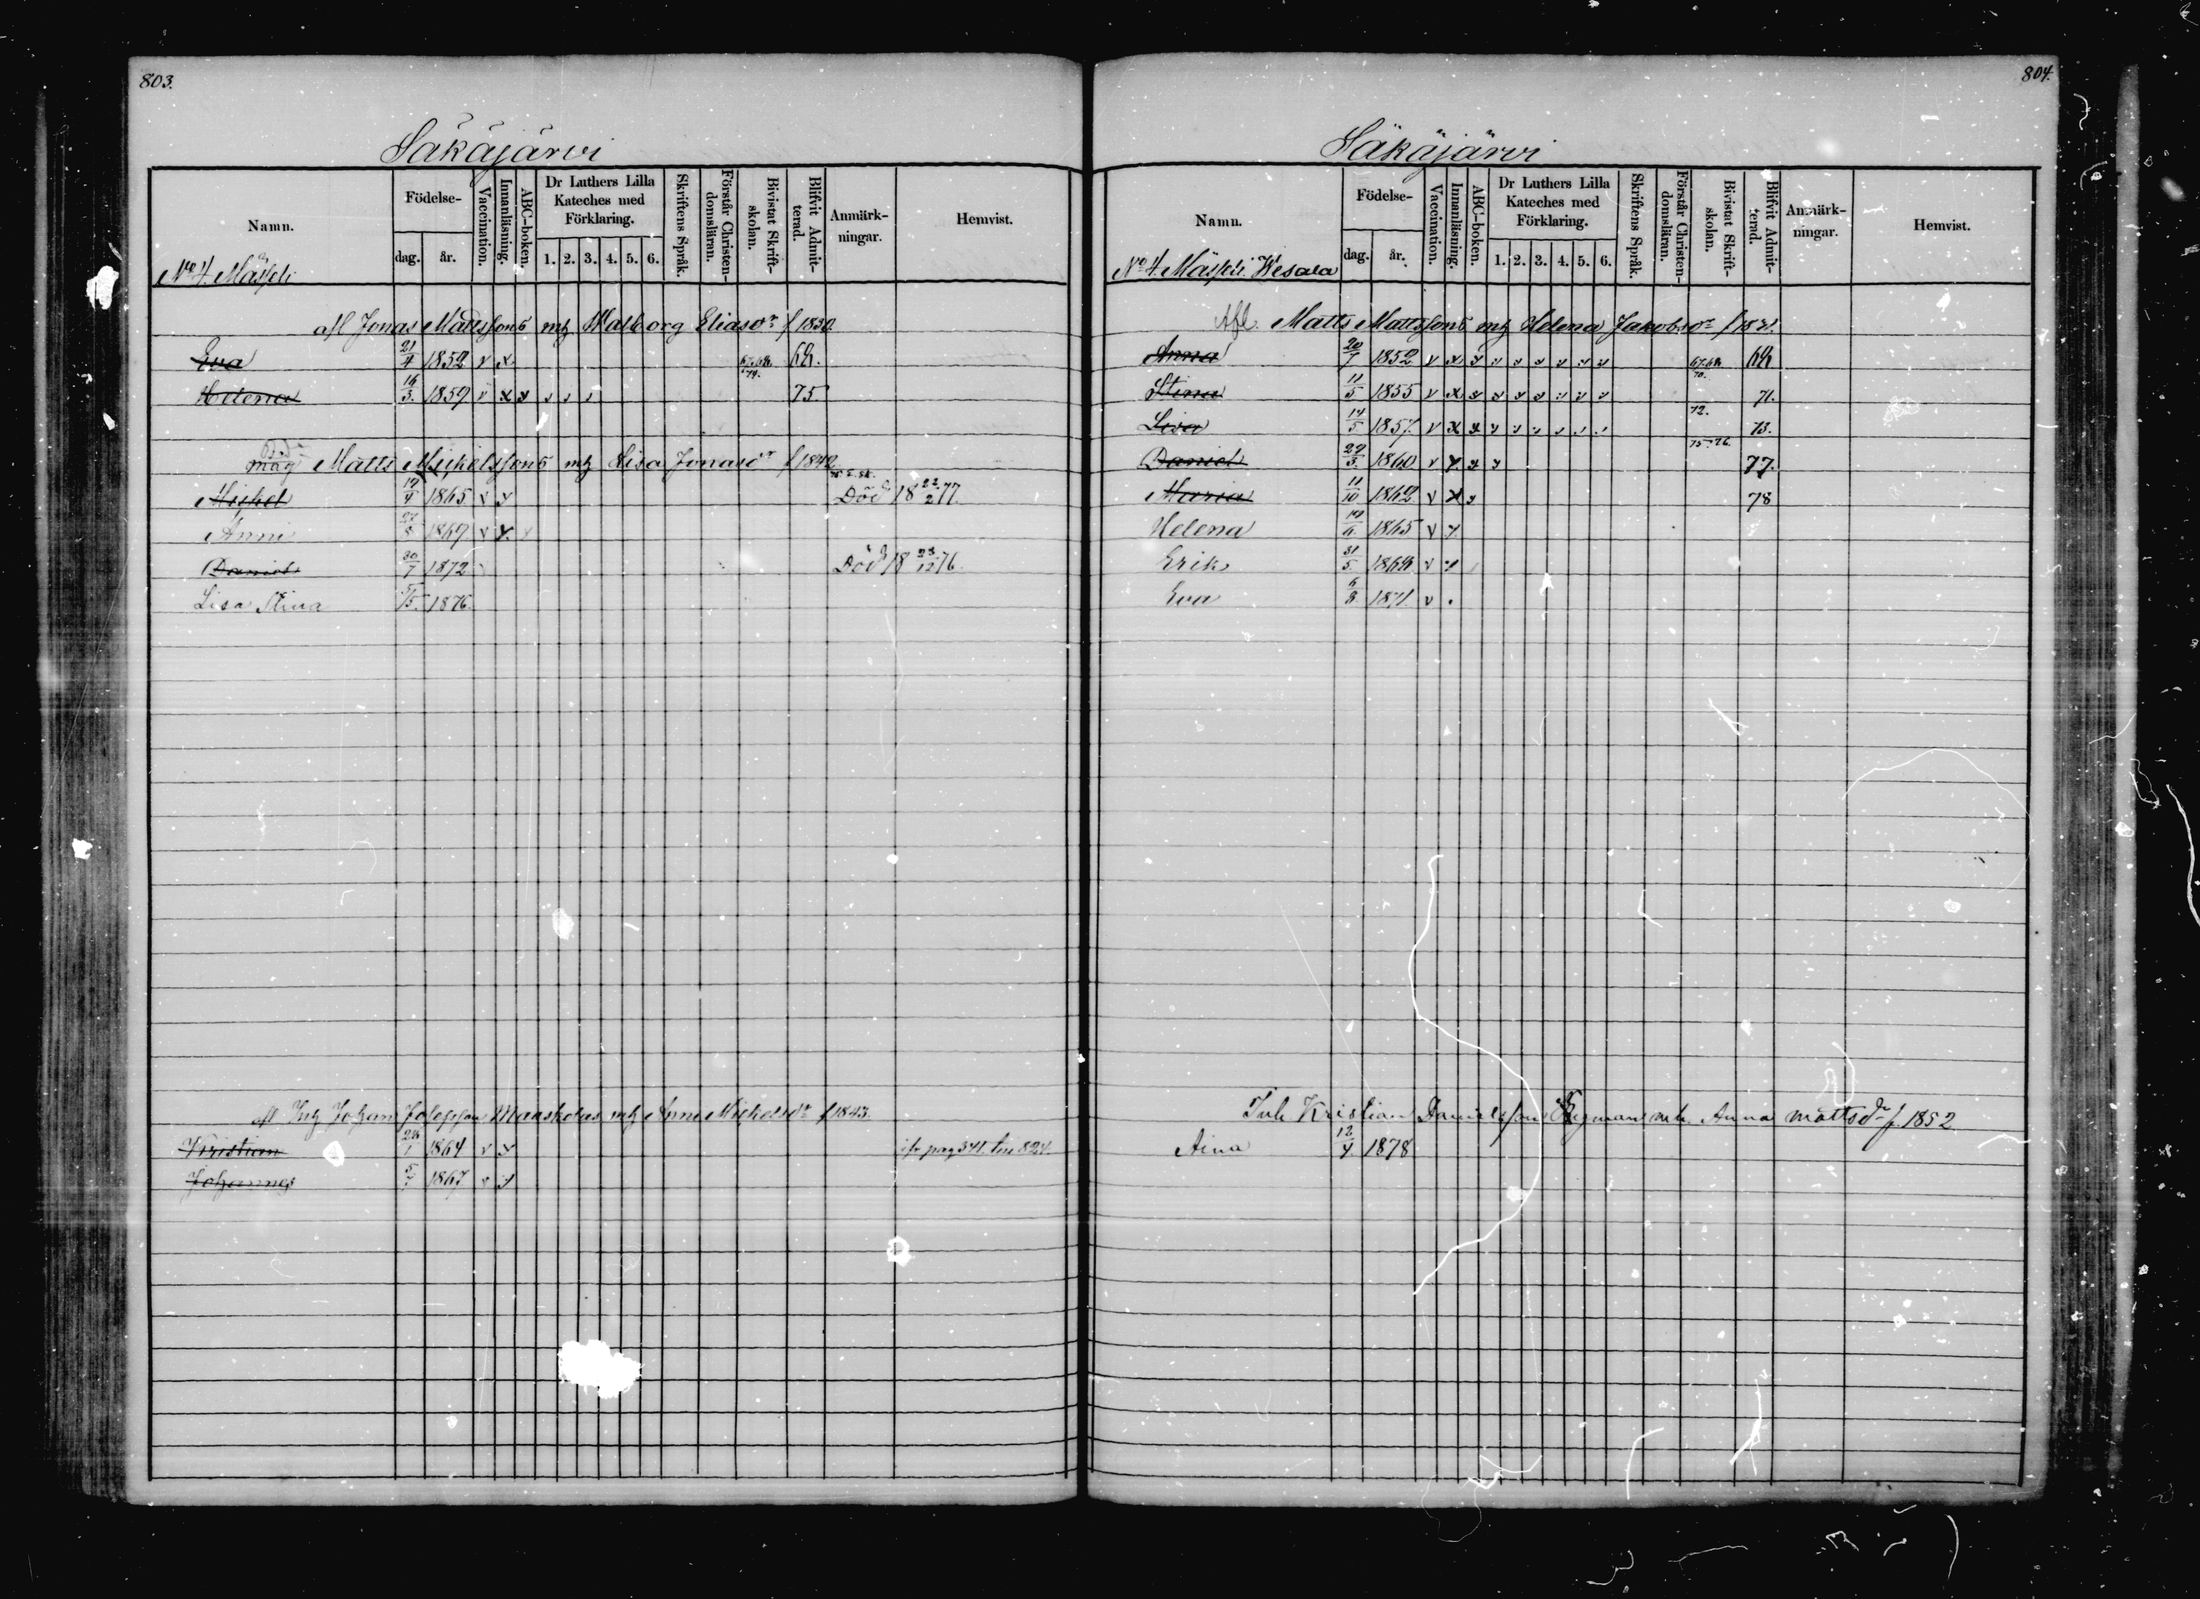 803.
Säkäjärvi
Namn.
Födelse-
dag.
år.
Vaccination.
Innanläsning.
ABC-boken.
Dr Luthers Lilla
Kateches med
Förklaring.
1. 2. 3. 4. 5. 6.
Skriftens Språk.
Förstår Christen-
domsläran.
Bivistat Skrift-
skolan.
Blifvit Admit-
terad.
Anmärk-
ningar.
Hemvist.
No 4
afl Jonas Mattssons mh Walborg Eliasdr f 1830.
Eva 21/4 1852 v x 67.68. 68.
Helena 16/3. 1859 v x x 74. 75
måg Matts Michelssons mh Lisa Jonasdr f 1842
Michel 19/4 1865 v Död 18 22/2 77.
Anni 1869 v
Daniel 30/7 1872 Död 18 23/12 76
Lisa Stina 5/5. 1876.
afl Inh Johan Josefsson mh Anna Michelsdr f 1843.
Kristian 1864 v pag 341. 824.
Johannes 5/7 1867 v
804.
Säkäjärvi
Namn.
Födelse-
dag.
år.
Vaccination.
Innanläsning.
ABC-boken.
Dr Luthers Lilla
Kateches med
Förklaring.
1. 2. 3. 4. 5. 6.
Skriftens Språk.
Förstår Christen-
domsläran.
Bivistat Skrift-
skolan.
Blifvit Admit-
terad.
Anmärk-
ningar.
Hemvist.
No 4 Wesala
Afl. Matts Mattssons mh Helena Jakobsdr
Anna 20/7 1852 v x 67.68 68
Stina 11/5 1855 v x 70. 71.
Lisa 14/5 1857. v x 72. 73.
Daniel 29/3. 1860 v 75-76. 77.
Maria 11/10 1862 v x 78
Helena 1865 v
Erik 31/5 1868 v
Eva 6/3 1871. v
Inh Kristian Danielsson mh. Anna Mattsdr f. 1852
Aina 12/4. 1878